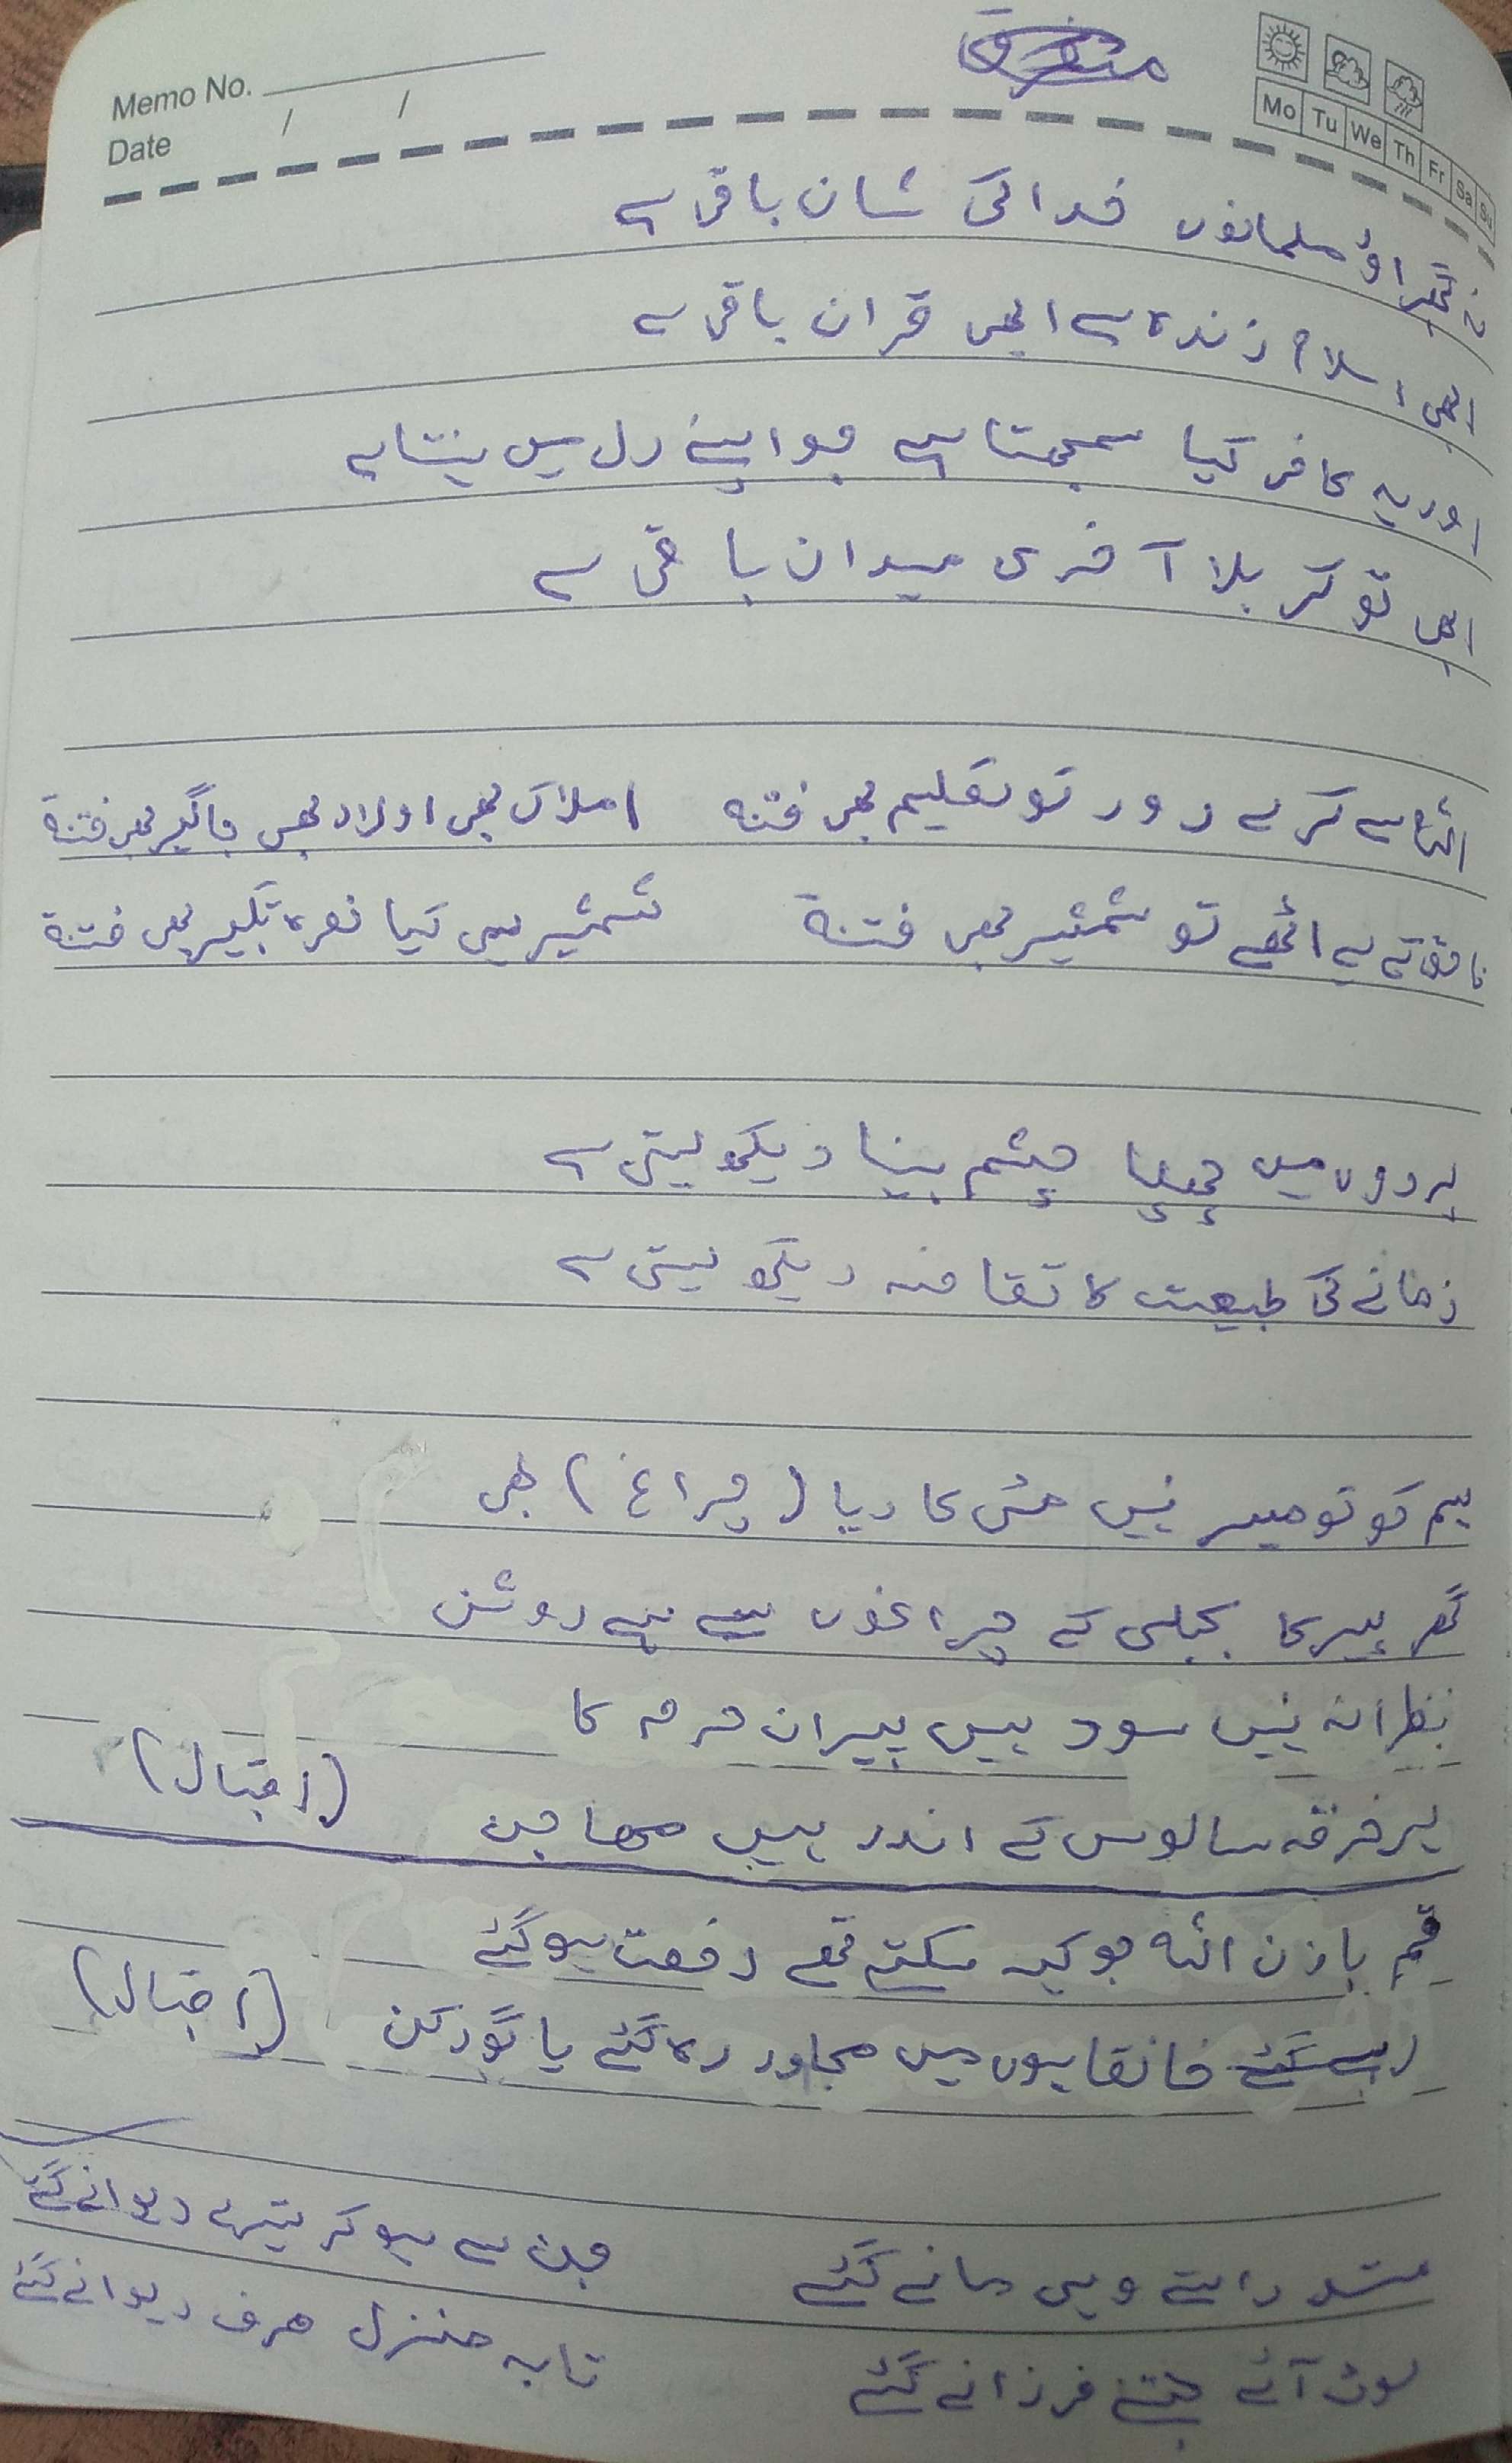 Memo No.
Date / /
متفرق
Mo Tu We Th Fr Sa Su
نہ گھبراؤ مسلمانوں خدا کی شان باقی ہے
ابھی اسلام زندہ ہے ابھی قران باقی ہے
اور یہ کافر کیا سمجھتا ہے جو اپنے دل میں ہنستا ہے
ابھی تو کربلا آخری میدان باقی ہے
اللہ سے کرے دور تو تعلیم بھی فتنہ املاک بھی اولاد بھی جاگیر بھی فتنہ
ناحق کے لیے اٹھے تو شمشیر بھی فتنہ شمشیر ہی کیا نعرہ تکبیر بھی فتنہ
پردوں میں چھپا چشم بینا دیکھ لیتی ہے
زمانے کی طبیعت کا تقاضہ دیکھ لیتی ہے
ہم کو تو میسر نہیں مٹی کا دیا (چراغ) بھی
گھر پیر کا بجلی کے چراغوں سے ہے روشن
نظرانہ نہیں سود ہیں پیران حرم کا
ہر خرقہ سالوس کے اندر ہیں مھاجن (اقبال)
قم باذن اللہ جو کہہ سکتے تھے رخصت ہو گئے
خانقاہوں میں مجاور رہ گئے یا گورکن (اقبال)
مستند راستے وہی مانے گئے جن سے ہو کر تیرے دیوانے گئے
لوٹ آئے جتنے فرزانے گئے تا بہ منزل صرف دیوانے گئے